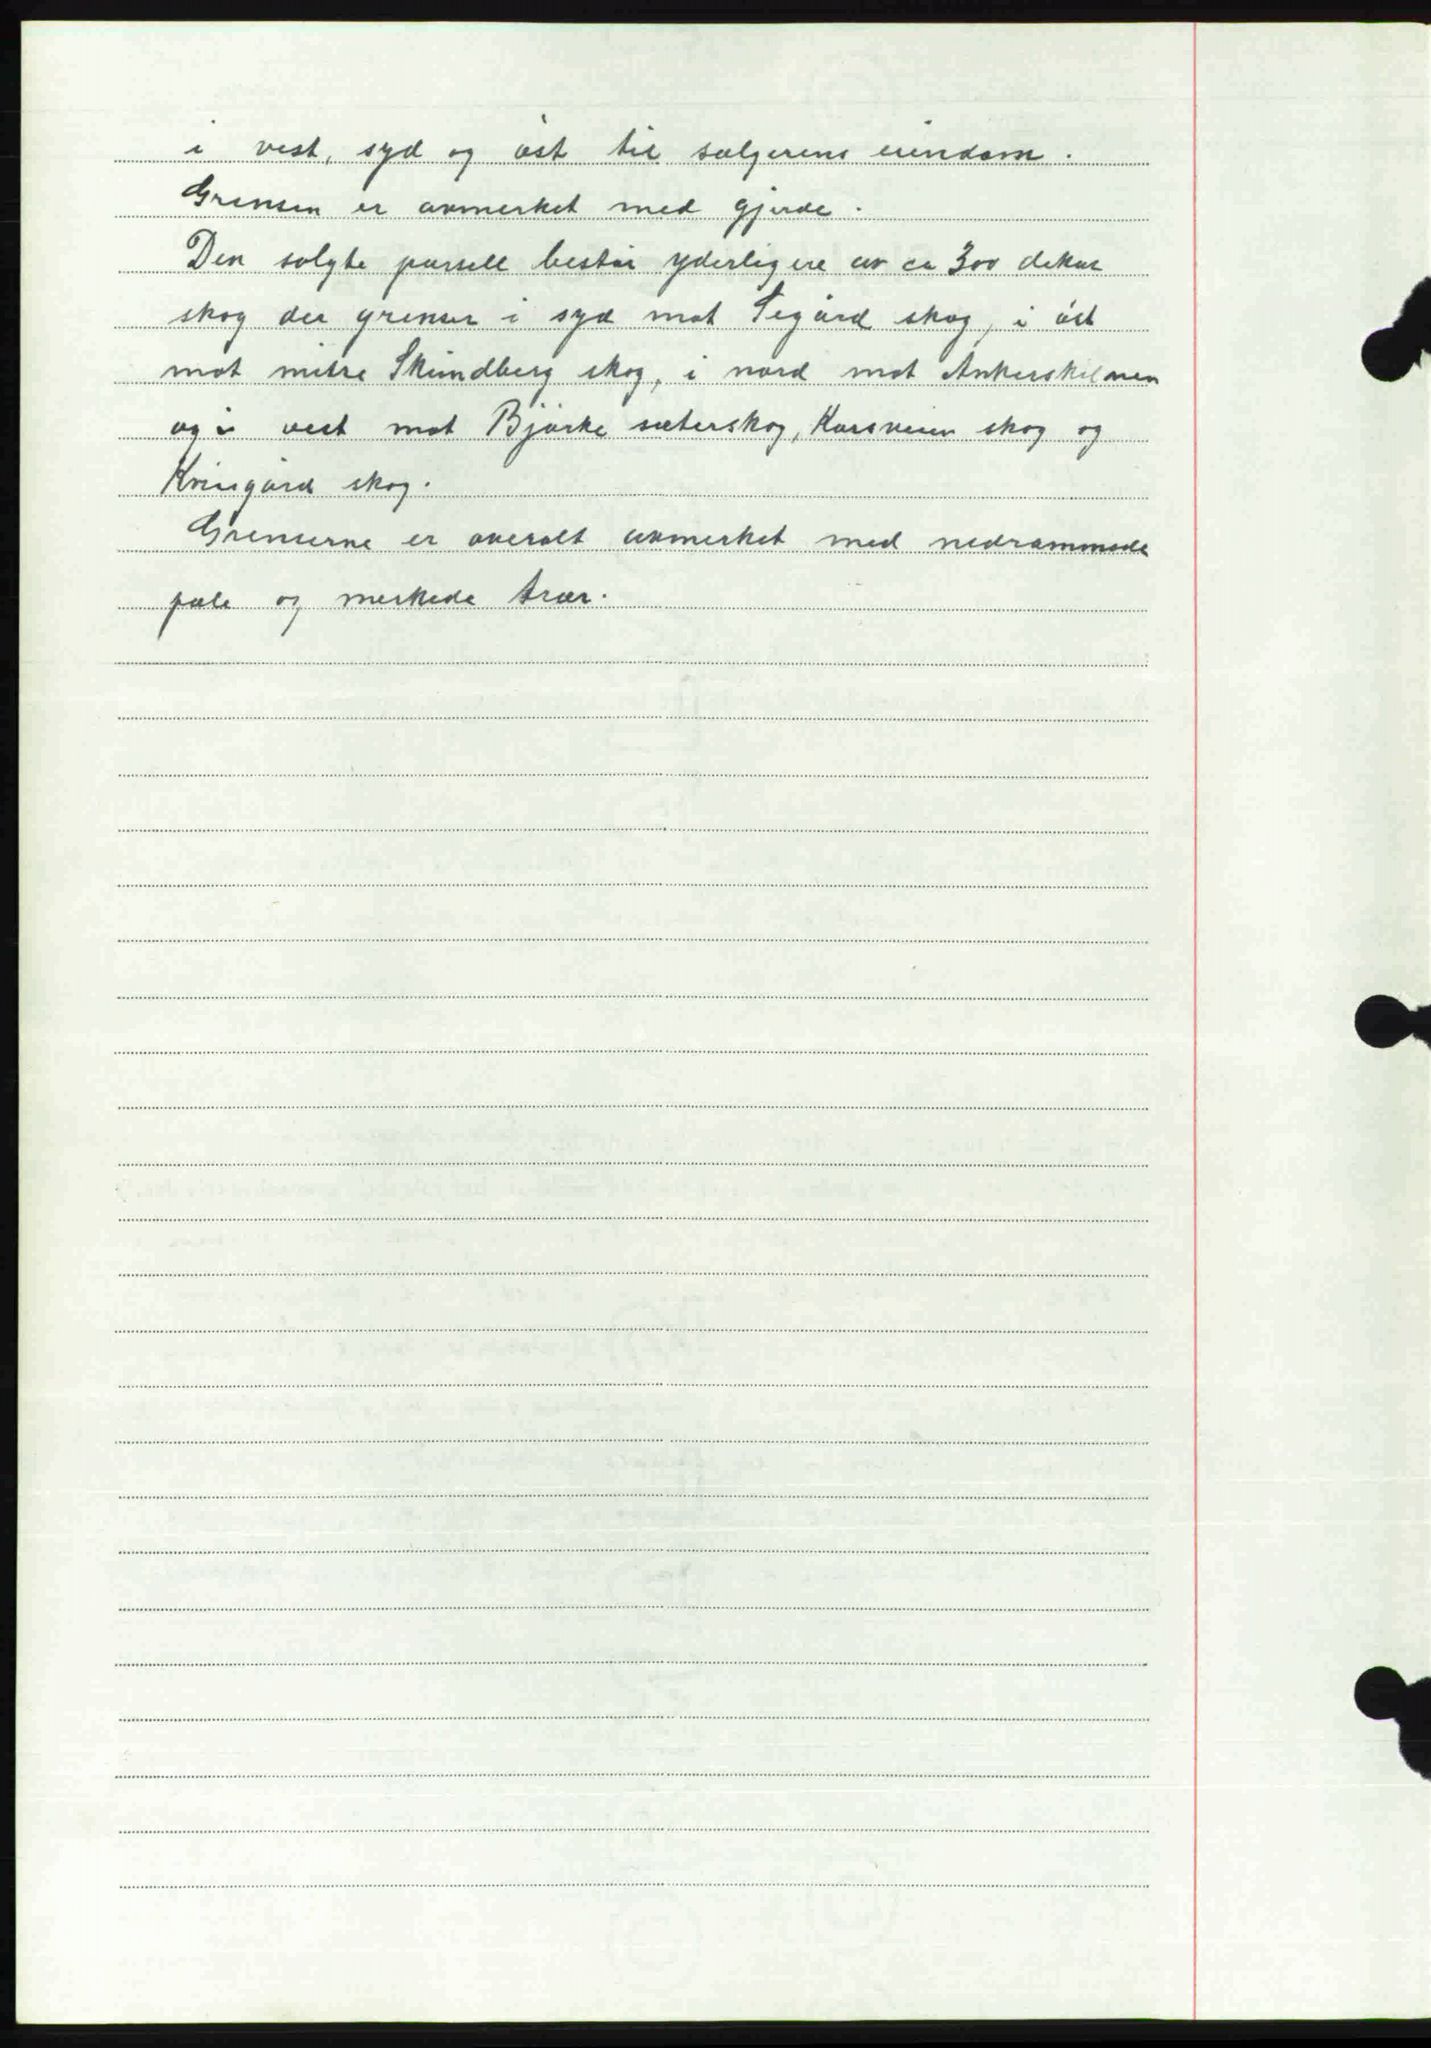 i vest, syd og øst til sælgerens eiendom.
Grensen er avmerket med gjerde.
Den solgte parsell består yderligere av ca 300 dekar
skog der grenser i syd mot Segård skog, i øst
mot mitre Skundberg skog, i nord mot Ankerskilnen
og i vest mot Bjørke sæterskog, Korsveien skog og
Kvisgård skog.
Grenserne er overalt avmerket med nedrammede
pæle og merkede trær.